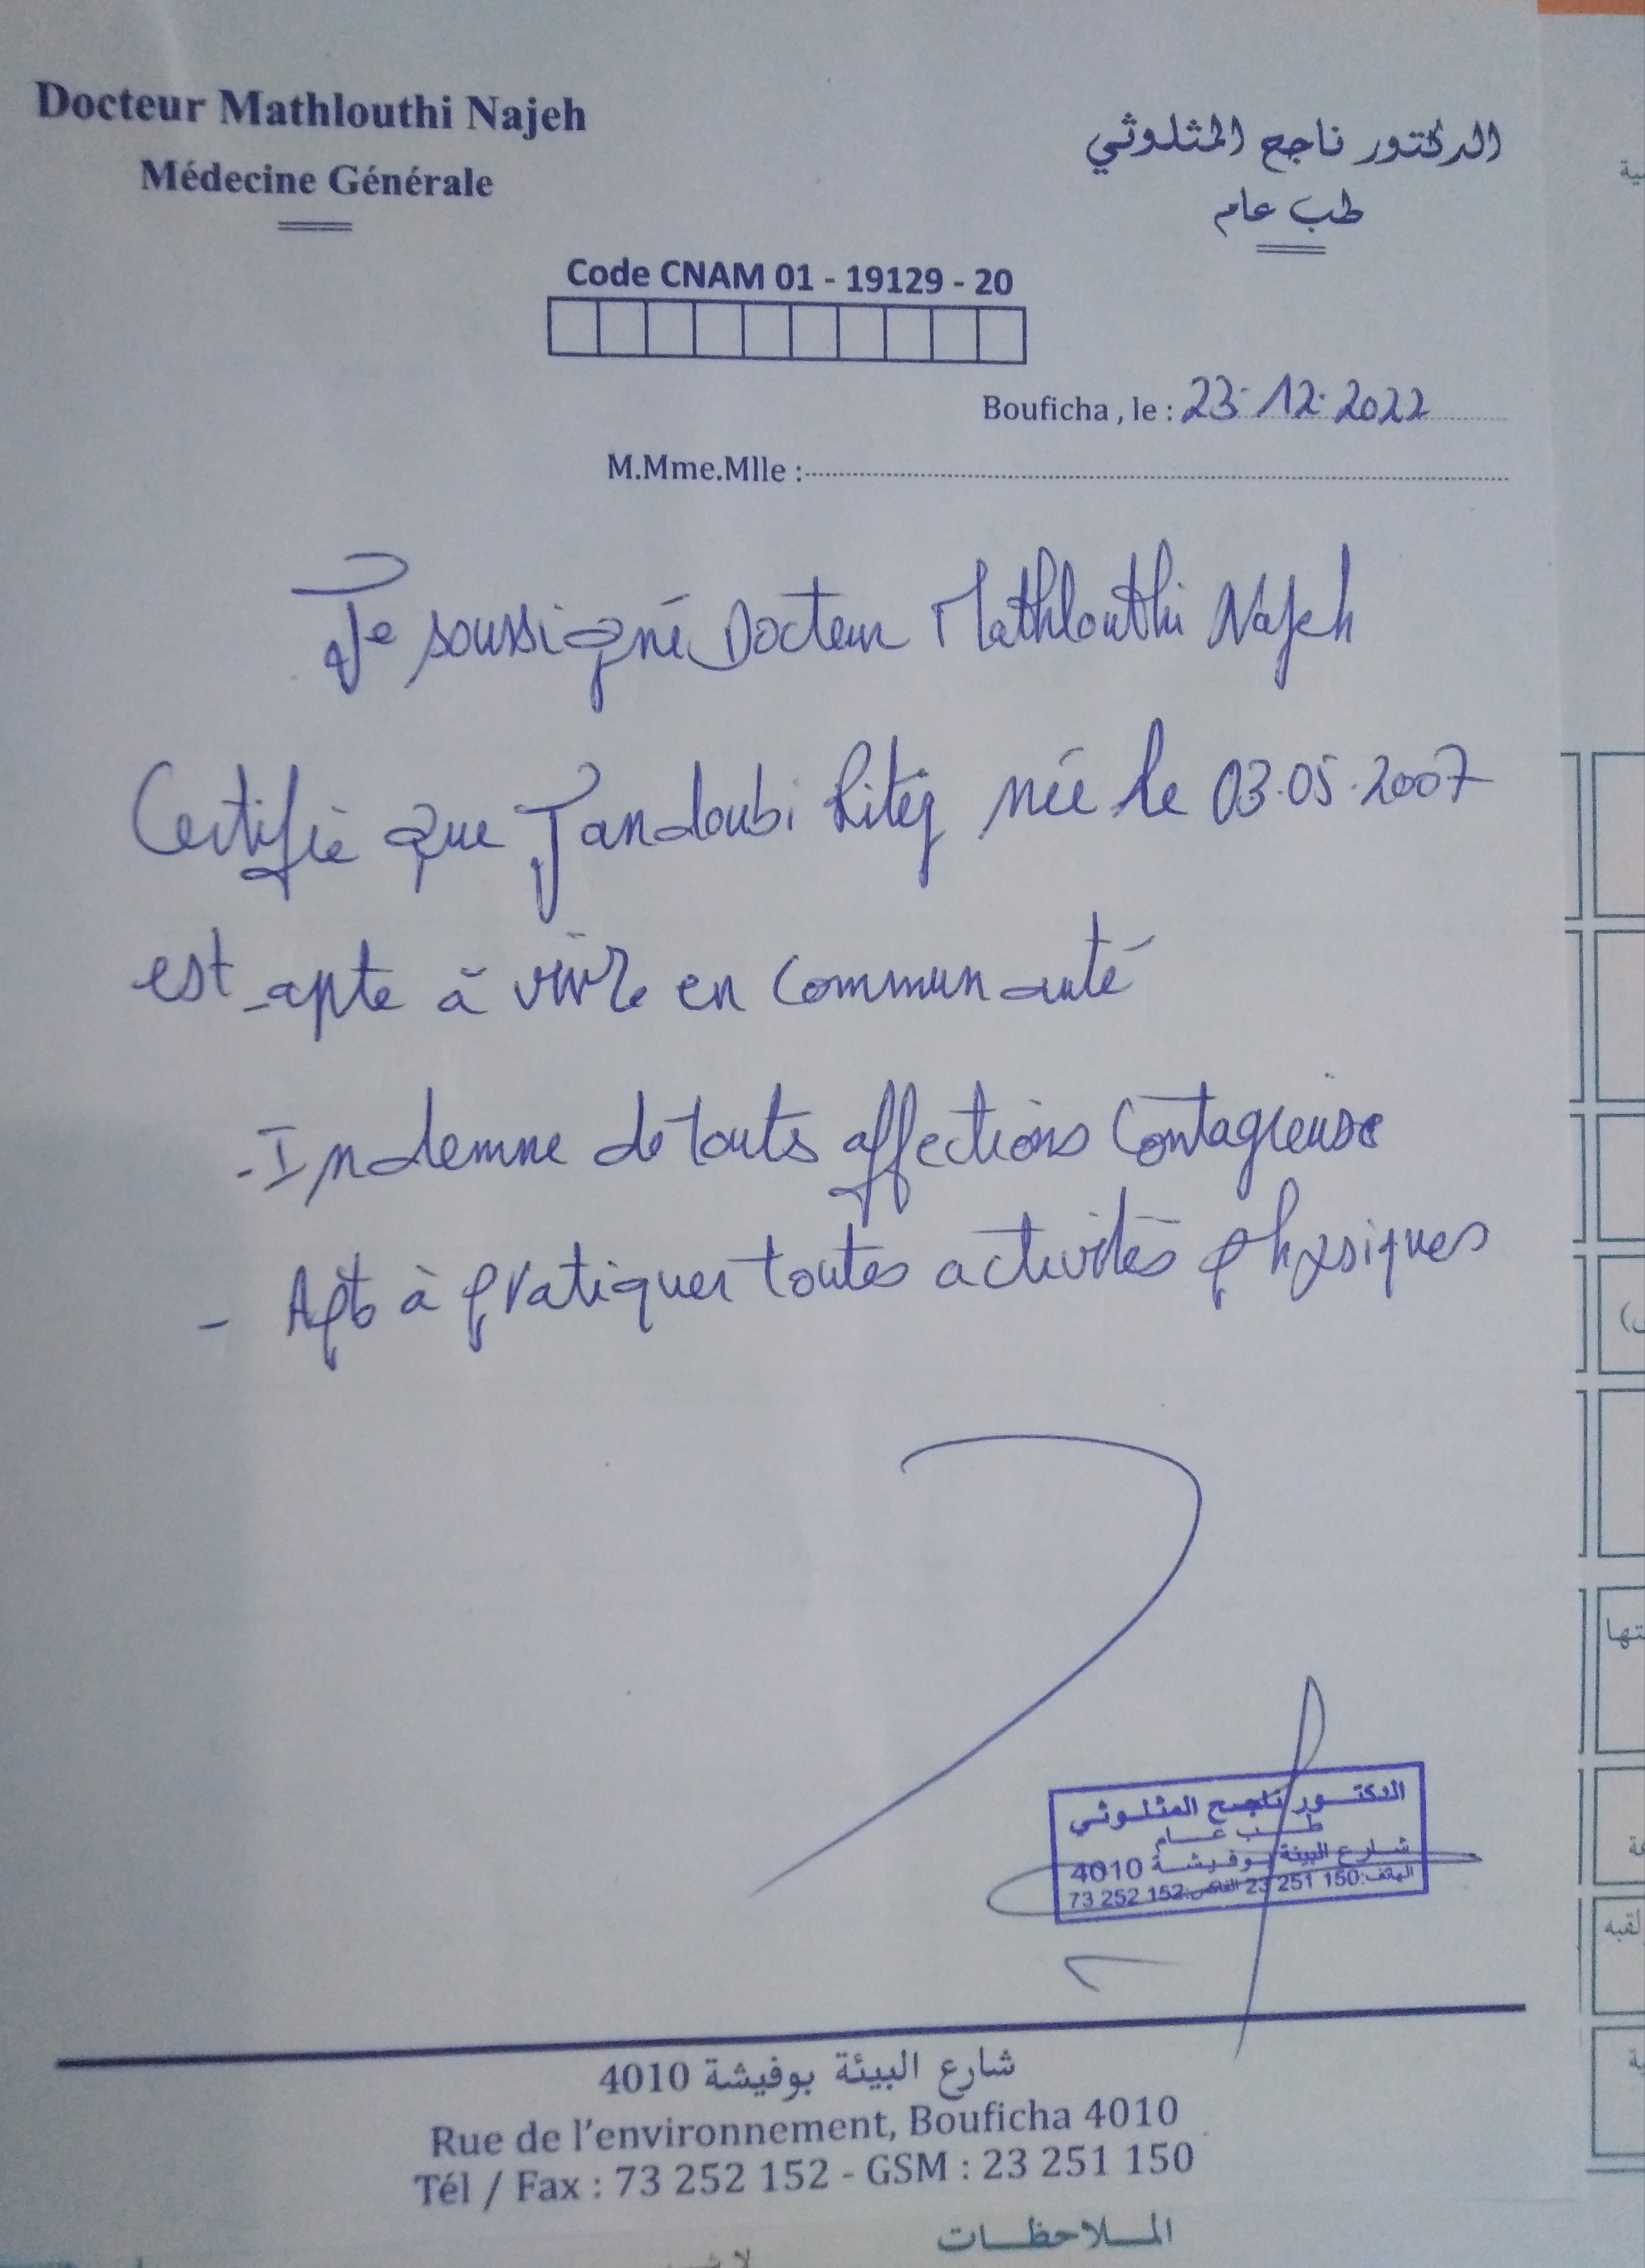 Docteur Mathlouthi Najeh
Médecine Générale
الدكتور ناجح المثلوثي
طب عام
Code CNAM 01 - 19129 - 20
Bouficha , le : 23.12.2022
M.Mme.Mlle :
Je soussigné Docteur Mathlouthi Najeh
Certifie que Jandoubi née le 03.05.2007
est apte à vivre en communauté
- Indemne de touts affections contagieuse
- Apte à pratiquer toutes activités physiques
الدكتور ناجح المثلوثي
طب عام
شارع البيئة بوفيشة 4010
الهاتف: 150 251 23 الفاكس: 152 252 73
شارع البيئة بوفيشة 4010
Rue de l'environnement, Bouficha 4010
Tél / Fax : 73 252 152 - GSM : 23 251 150
الملاحظات